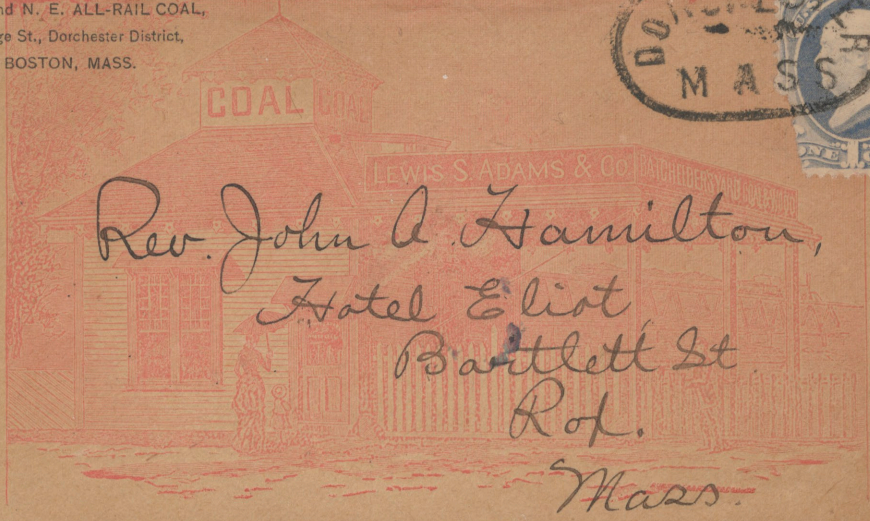 nd N. E. ALL-RAIL COAL,
ge St., Dorchester District,
BOSTON, MASS.
DORCHESTER
MASS
ONE
COAL COAL
LEWIS S. ADAMS & Co.
Rev. John A. Hamilton,
Hotel Eliot
Bartlett St
Rox.
Mass.